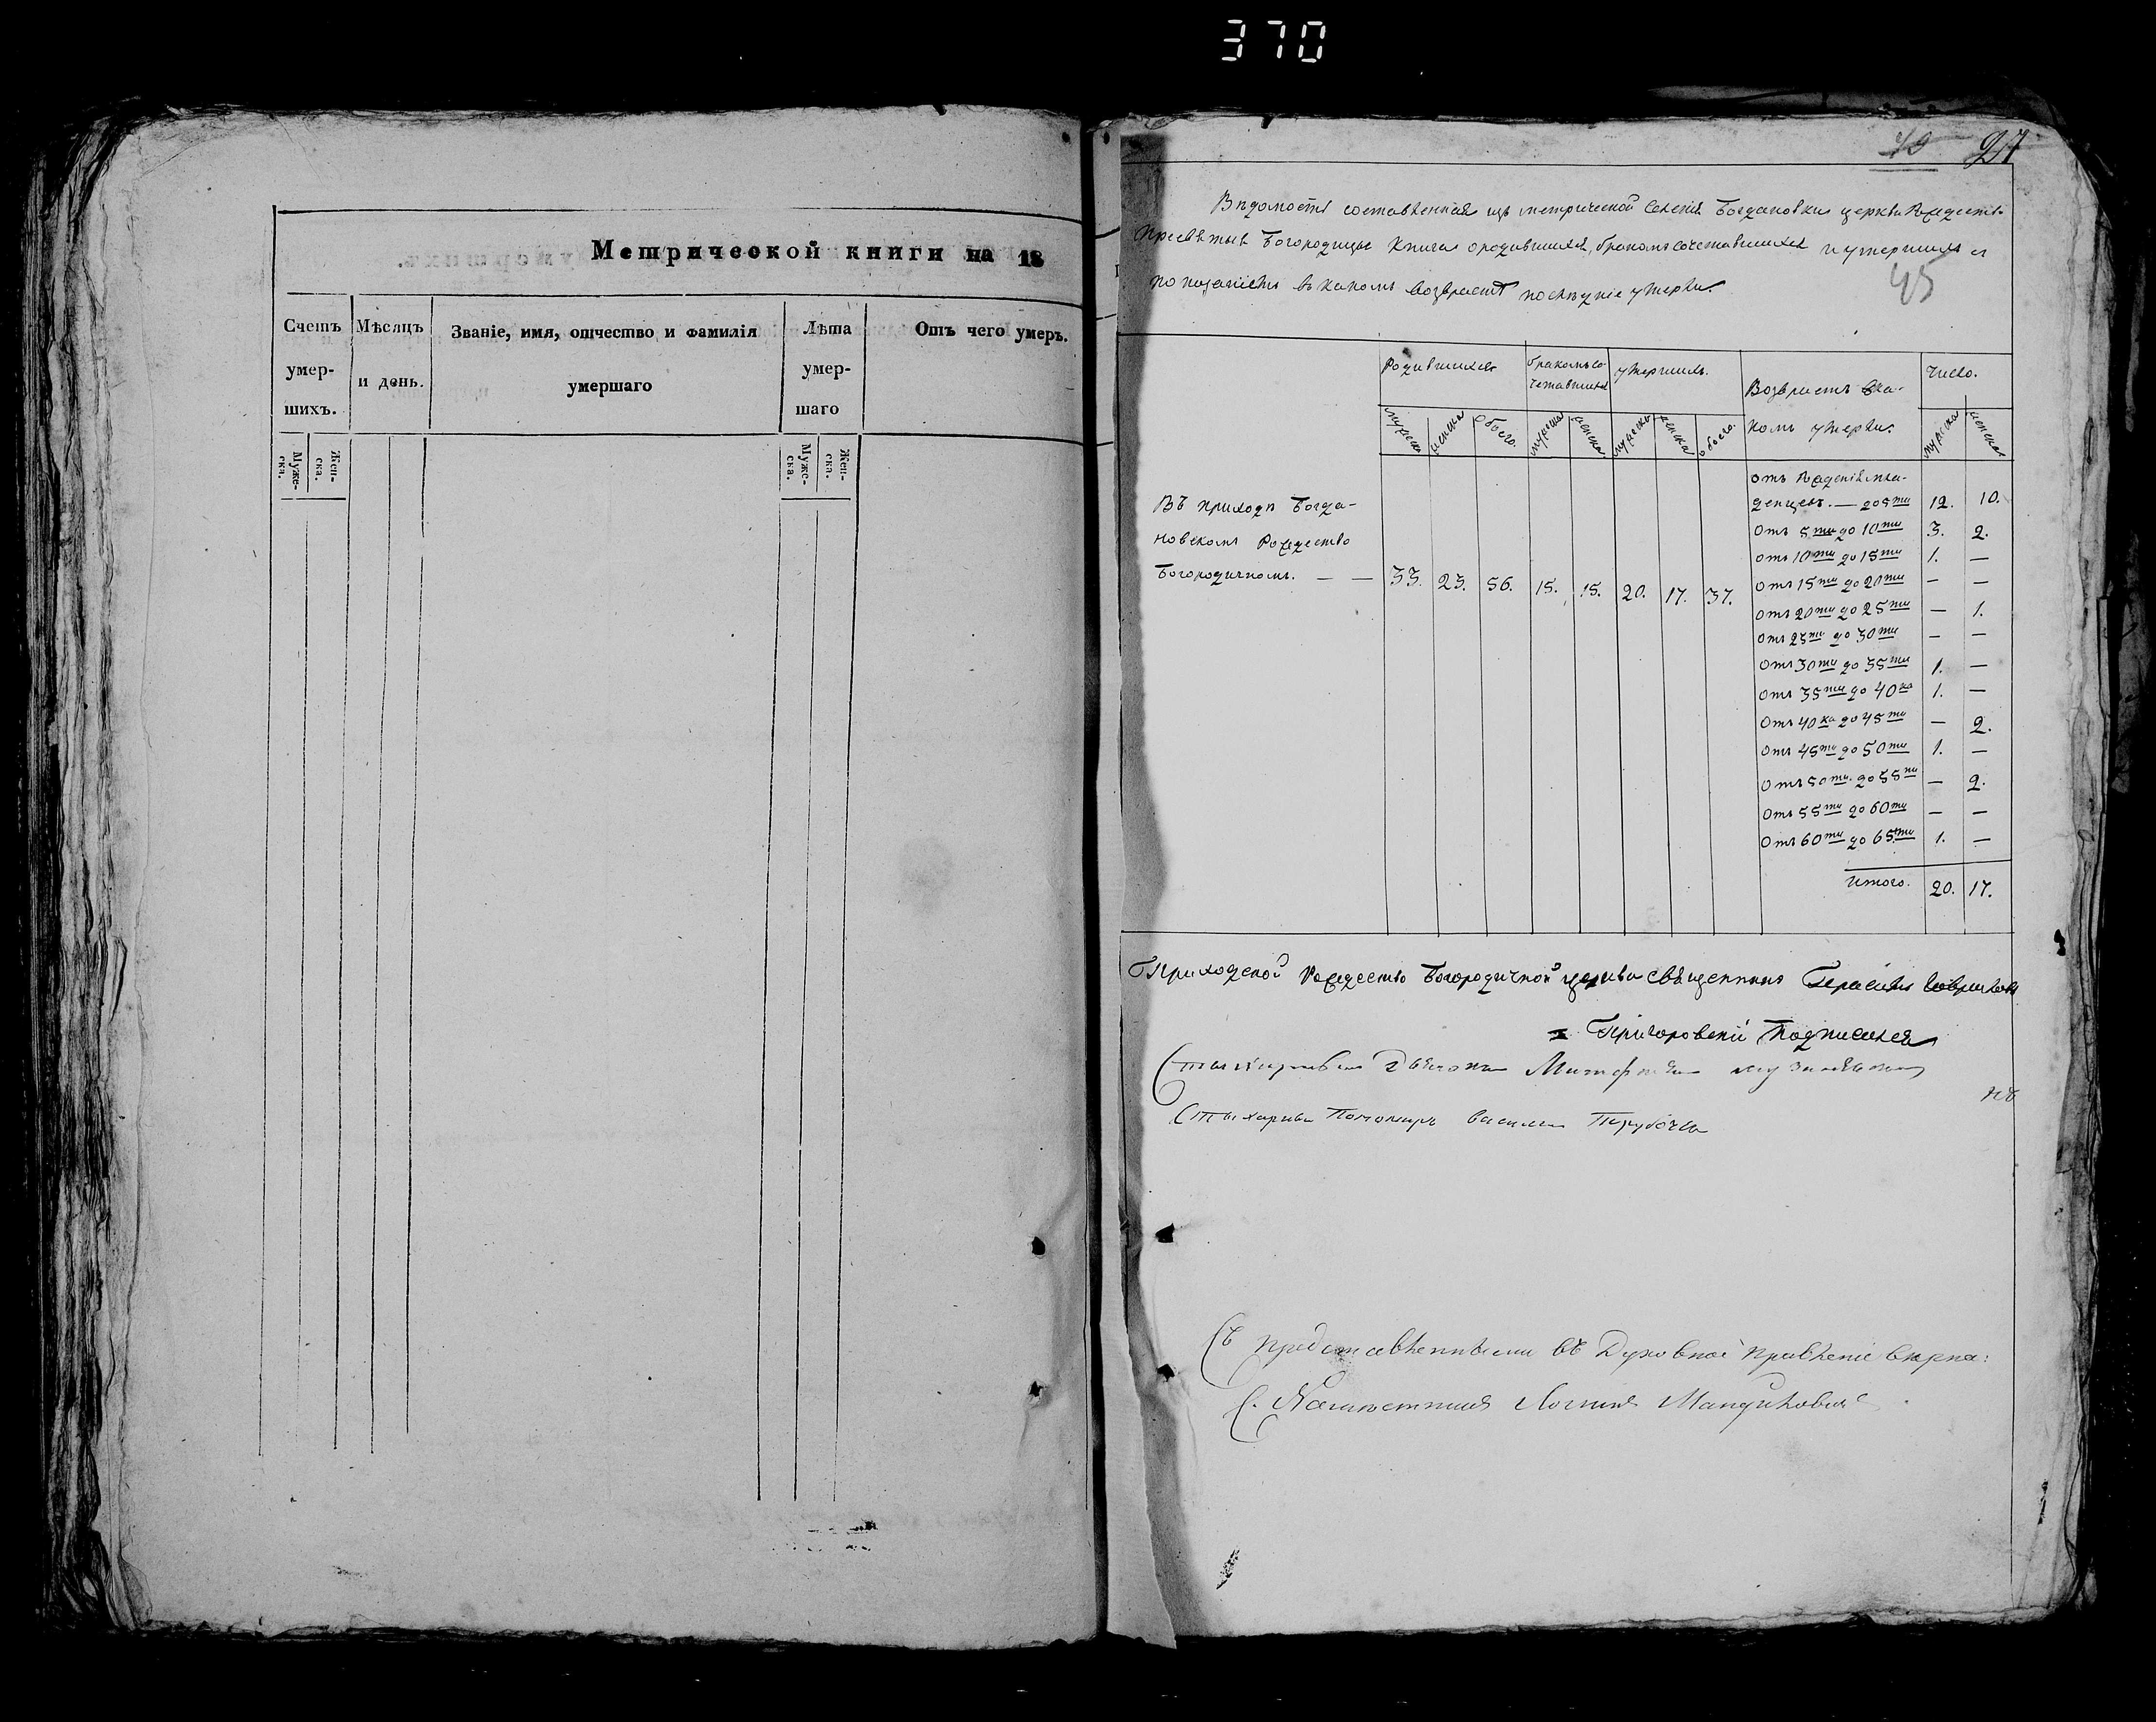 370
Метрической книги на 18
Счетъ умер-шихъ.
Мѣсяцъ и день.
Званіе, имя, отчество и фамилія умершаго
Лѣта умер-шаго
Отъ чего умеръ.
Муже-ска.
Жен-ска.
Муже-ска.
Жен-ска.
40 27
Вѣдомость составленная изъ метрической селенія Богдановки церкви Рождества
Пресвятыя Богородицы книги о родившихся, бракомъ сочетавшихся и умершихъ съ
показаніемъ въ какомъ возрастѣ послѣдніе умерли.
45
Родившихся
бракомъ со-четавшихся
умершихъ.
Возрастъ въ ка-комъ умерли.
Число.
мужска женска обоего. мужска женска мужска женска обоего. мужска женска
Въ приходѣ Богда-
новскомъ Рождество
Богородичномъ. — — 33. 23. 56. 15. 15. 20. 17. 37.
отъ Рожденія мла-
денцевъ. — до 5ти 12. 10.
Отъ 5ти до 10ти 3. 2.
отъ 10ти до 15ти 1. —
Отъ 15ти до 20ти — —
Отъ 20ти до 25ти — 1.
Отъ 25ти до 30ти — —
Отъ 30ти до 35ти 1. —
Отъ 35ти до 40ка 1. —
Отъ 40ка до 45ти — 2.
Отъ 45ти до 50ти 1. —
Отъ 50ти до 55ти — 2.
Отъ 55ти до 60ти — —
Отъ 60ти до 65ти 1. —
Итого. 20. 17.
Приходской Рождество Богородичной церкви священникъ Герасимъ
Григоровскій Подписался
Дьячокъ
Пономарь Василій
Съ представленными въ Духовное Правленіе вѣрна:
С. Намѣстникъ Логинъ